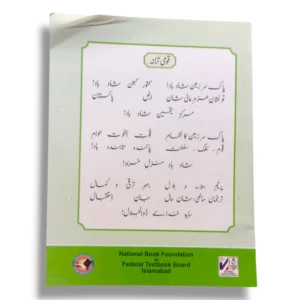 قومی ترانہ
پاک سرزمین شاد باد! کشورِ حسین شاد باد!
تو نشانِ عزمِ عالی شان ارضِ پاکستان
مرکزِ یقین شاد باد!
پاک سرزمین کا نظام قوتِ اخوتِ عوام
قوم، ملک، سلطنت پائندہ تابندہ باد!
شاد باد منزلِ مراد!
پرچمِ ستارہ و ہلال رہبرِ ترقی و کمال
ترجمانِ ماضی، شانِ حال جانِ استقبال
سایۂ خدائے ذوالجلال!
National Book Foundation
as
Federal Textbook Board
Islamabad